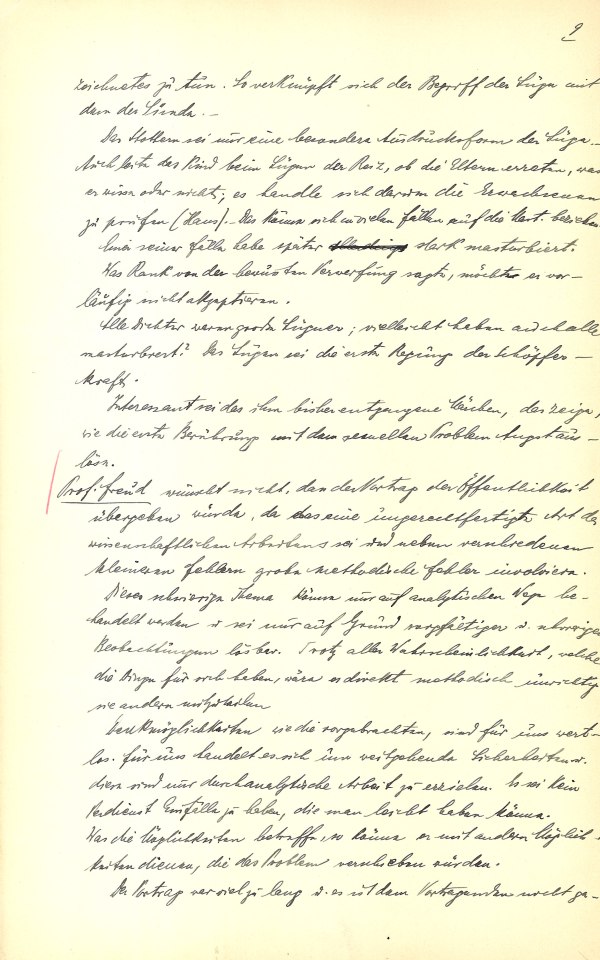 9
zeichnetes zu tun. So verknüpft sich der Begriff der Lüge mit
dem der Sünde. –
Das Stottern sei nur eine besondere Ausdrucksform der Lüge. –
Auch leite das Kind beim Lügen der Reiz, ob die Eltern erraten, was
es wisse oder nicht; es handle sich darum die Erwachsenen
zu prüfen (Haus). – Das könne sich in vielen Fällen auf die Mast. beziehen
Einer seiner Fälle habe später stark masturbiert.
Was Rank von der bewussten Verwerfung sagte, möchte er vor-
läufig nicht akzeptieren.
Alle Dichter waren große Lügner; vielleicht haben auch alle
masturbiert? Das Lügen sei die erste Regung der Schöpfer-
kraft.
Interessant sei das ihm bisher entgangene Märchen, das zeige,
wie die erste Berührung mit dem sexuellen Problem Angst aus-
löse.
Prof. Freud wünscht nicht, dass der Vortrag der Öffentlichkeit
übergeben würde, da das eine ungerechtfertigte Art des
wissenschaftlichen Arbeitens sei und neben verschiedenen
kleineren Fehlern grobe methodische Fehler involviere.
Dieses schwierige Thema könne nur auf analytischem Wege be-
handelt werden u. sei nur auf Grund sorgfältiger u. schwieriger
Beobachtungen lösbar. Trotz aller Wahrscheinlichkeit, welche
die Dinge für sich haben, wäre es direkt methodisch unrichtig
sie andern mitzuteilen
Denkmöglichkeiten wie die vorgebrachten, sind für uns wert-
los. Für uns handelt es sich um weitgehende Sicherheiten u.
diese sind nur durch analytische Arbeit zu erzielen. Es sei kein
Verdienst Einfälle zu haben, die man leicht haben könne.
Was die Möglichkeiten betreffe, so könne er mit andern Möglich-
keiten dienen, die das Problem verschieben würden.
Der Vortrag war viel zu lang u. es ist dem Vortragenden nicht ge-